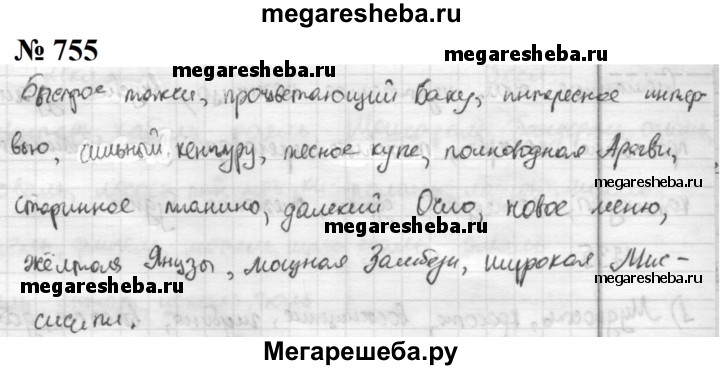 megaresheba.ru
№ 755
megaresheba.ru
Быстрое такси, процветающий Баку, интересное интер-
megaresheba.ru
вью, сильный кенгуру, тесное купе, полноводная Арагви,
megaresheba.ru
старинное пианино, далекий Осло, новое меню,
жёлтая Янцзы, мощная Замбези, широкая Мис-
megaresheba.ru
megaresheba.ru
сисипи.
Мегарешеба.ру